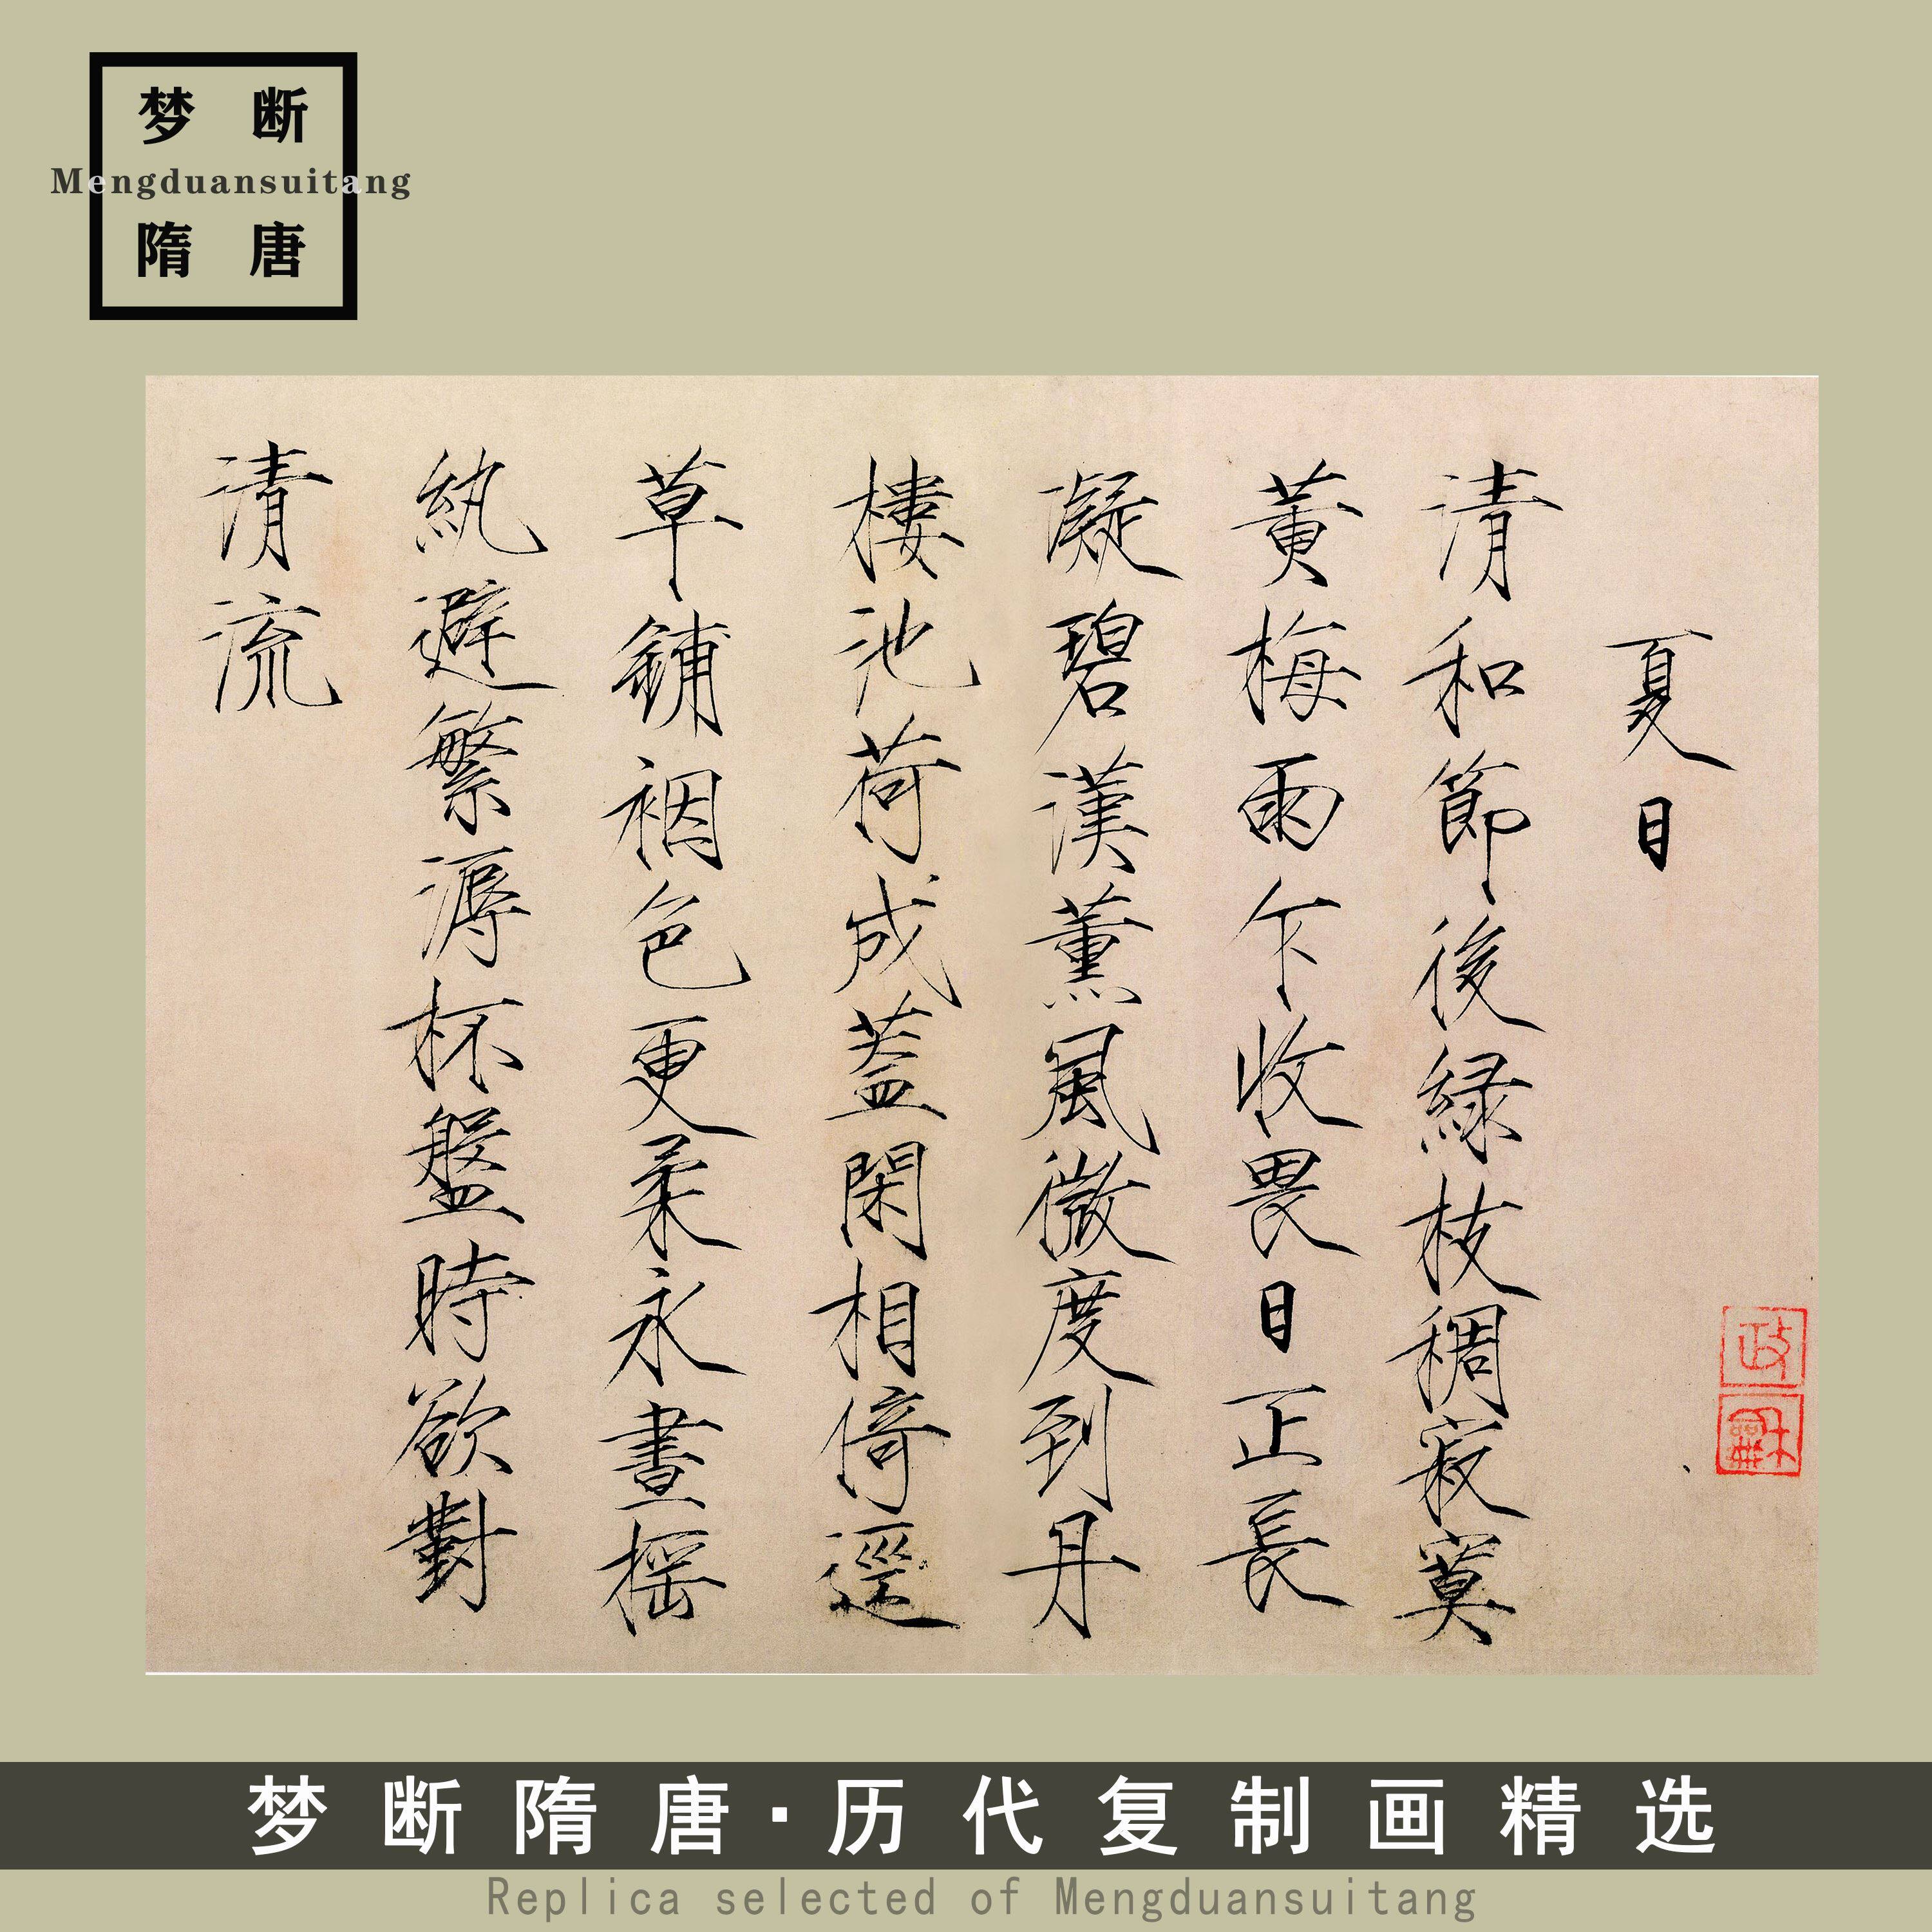 梦断
Mengduansuitang
隋唐
夏日
清和節後緑枝稠寂寞
黄梅雨乍收畏日正長
凝碧漢薰風微度到丹
樓池荷成蓋閑相倚逕
草鋪裀色更柔永晝摇
紈避繁溽杯盤時欲對
清流
政和
梦断隋唐·历代复制画精选
Replica selected of Mengduansuitang